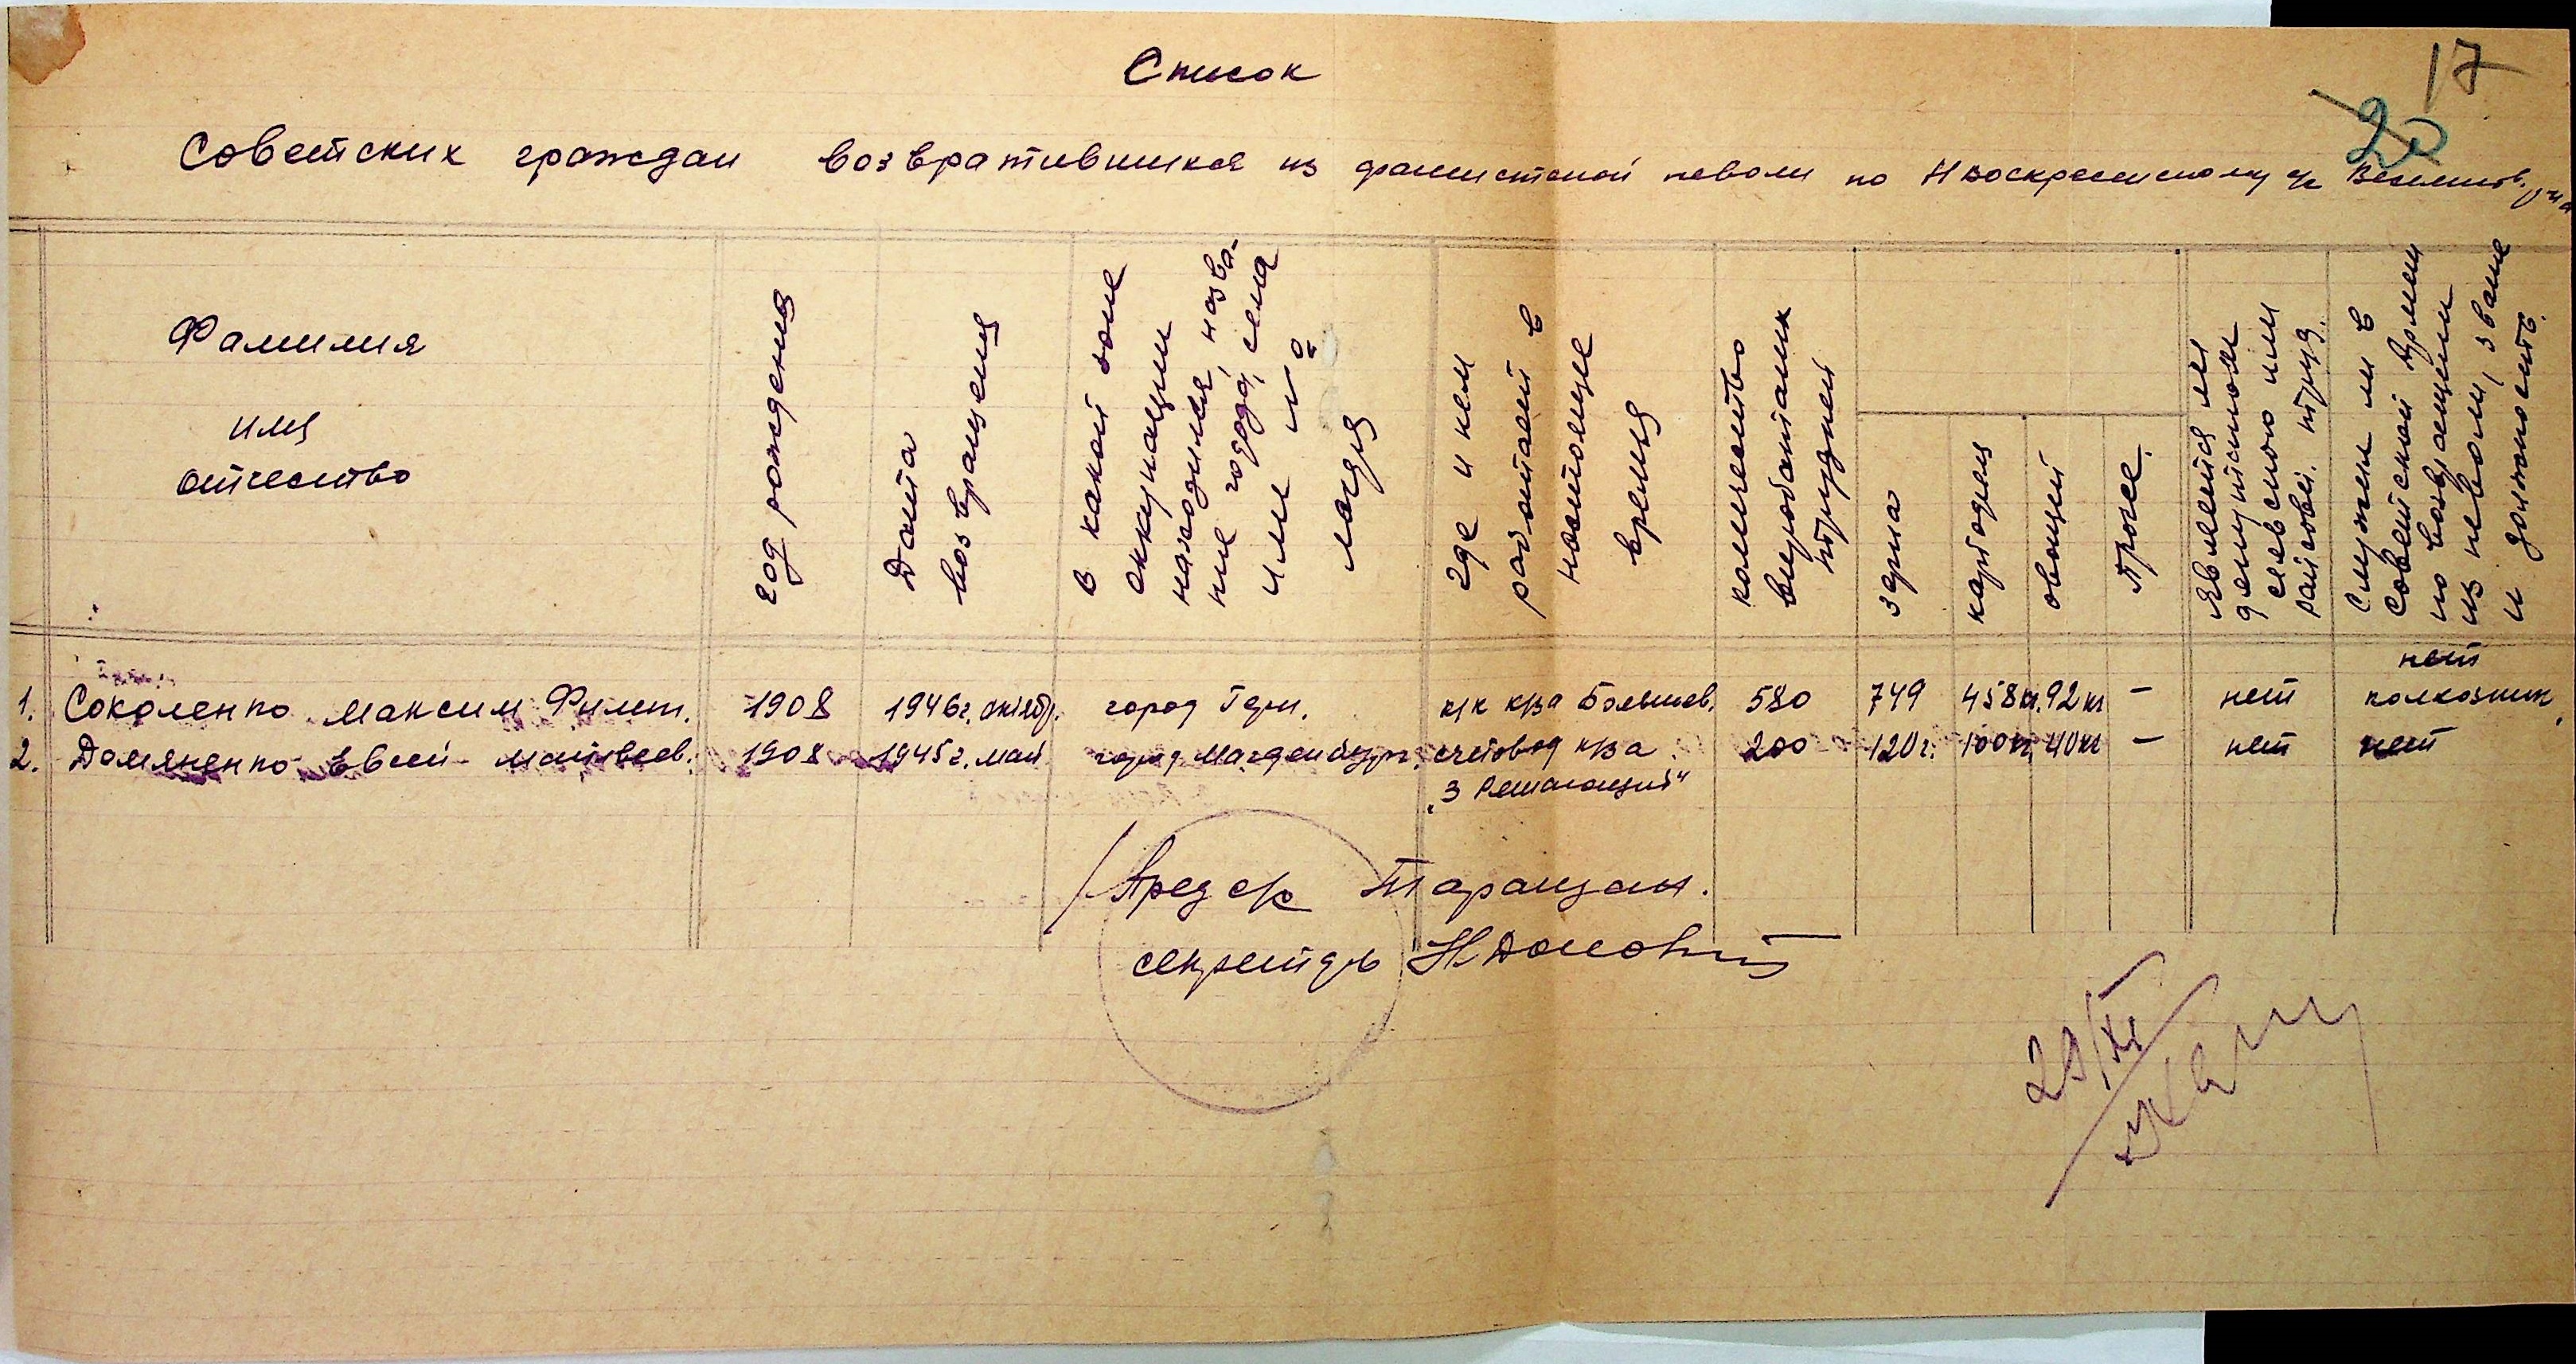 17
20
Список
Советских граждан возвратившихся из фашистской неволи по Нвоскресенскому с/с
Фамилия
имя
отчество
год рождения
Дата
возвращения
В какой зоне
оккупации
находился, назва-
ние города, села
или №
лагеря
где и кем
работает в
настоящее
время
количество
выработаних
трудодней
зерна
картофел
овощей
Проче.
Является ли
депутатом
сельского или
райсовет. труд.
Служил ли в
Советской Армии
по возвращении
из неволи, звание
и должность.
1. Соколенко Максим Филип. 1908 1946г. октябр. город Герм. к/к к/за Большев. 580 749 458кг. 92кг — нет нет
колхозник
2. Домяненко Евсей Матвеев. 1908 1945г. май город Магдейбург. счетовод к/за 200 120г. 100кг 40кг — нет нет
„3 Решающий"
Пред с/с Таращан.
секретарь
29/XI